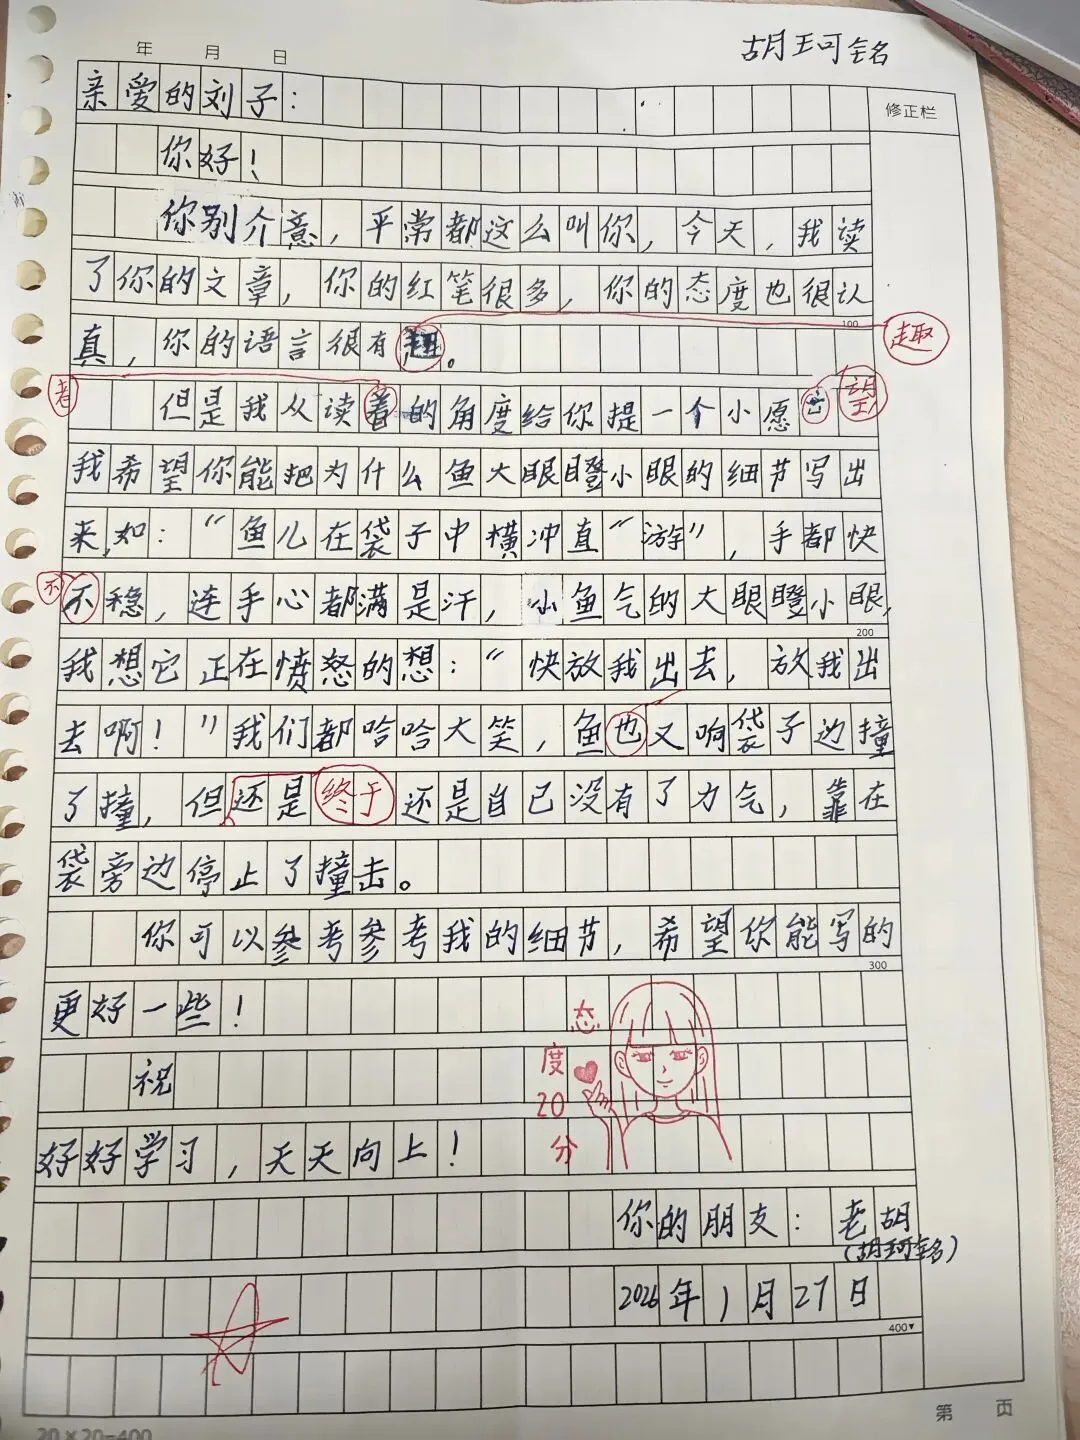 胡珂铭
年 月 日
亲爱的刘子：
修正栏
你好！
你别介意，平常都这么叫你，今天，我读
了你的文章，你的红笔很多，你的态度也很认
100
真，你的语言很有趣。
趣
者
但是我从读着的角度给你提一个小愿望
望
我希望你能把为什么鱼大眼瞪小眼的细节写出
来，如：“鱼儿在袋子中横冲直“游”，手都快
不
不稳，连手心都满是汗，小鱼气的大眼瞪小眼，
200
我想它正在愤怒的想：“快放我出去，放我出
去啊！”我们都哈哈大笑，鱼也又响袋子边撞
了撞，但还是终于还是自己没有了力气，靠在
袋旁边停止了撞击。
你可以参考参考我的细节，希望你能写的
300
更好一些！
态度20分
祝
好好学习，天天向上！
你的朋友：老胡
（胡珂铭）
2026年1月27日
400
第 页
20×20=400